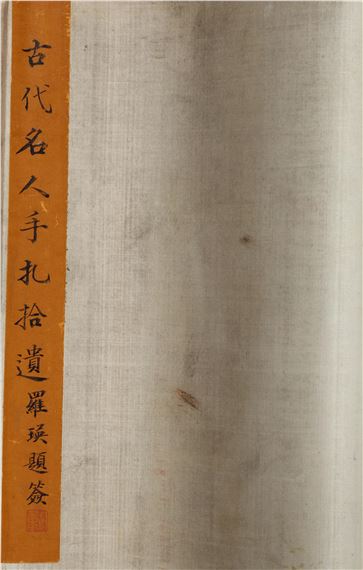 古代名人手札拾遺羅瑛題簽